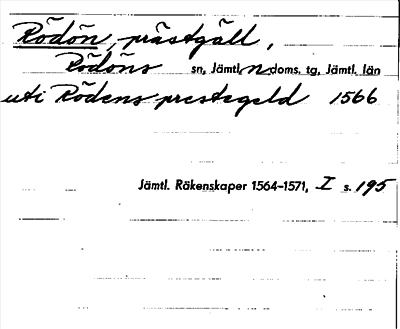 Rödön, prästgäll,
Rödöns sn, Jämtl. n doms. tg, Jämtl. län
uti Rödens prestegeld 1566
Jämtl. Räkenskaper 1564-1571, I s. 195